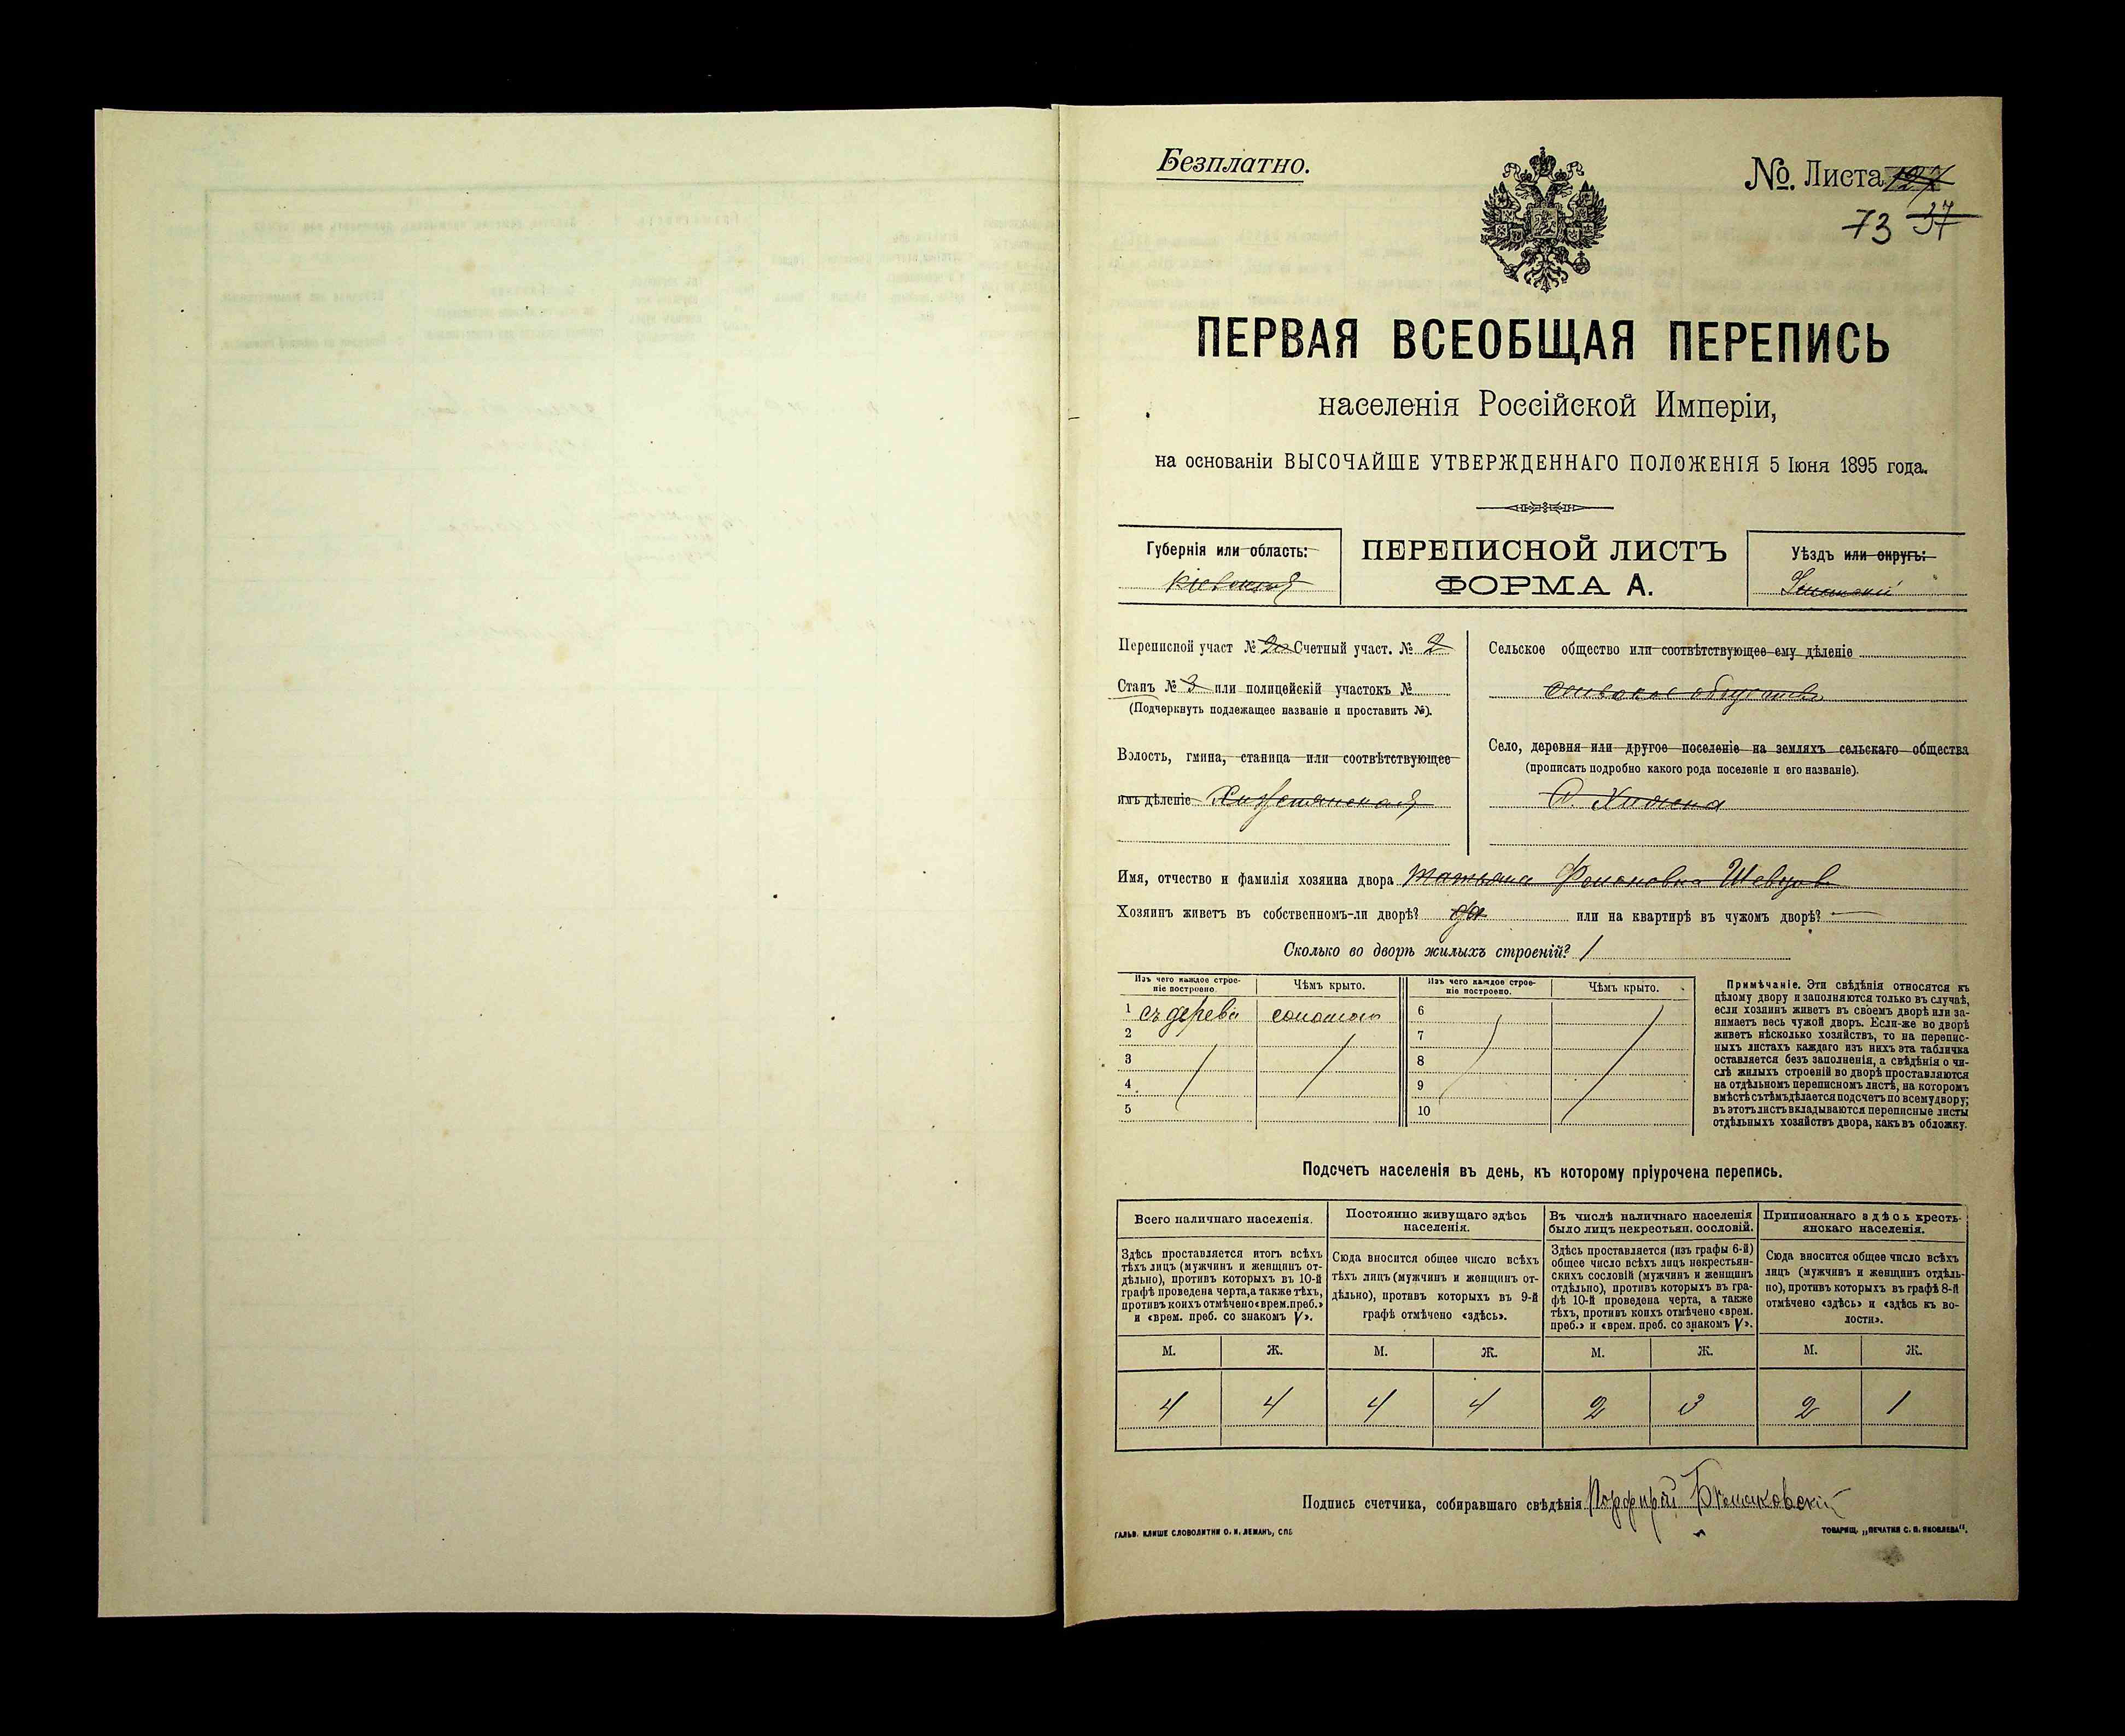 Безплатно.
№. Листа
73 37
ПЕРВАЯ ВСЕОБЩАЯ ПЕРЕПИСЬ
населенія Россійской Имперіи,
на основаніи ВЫСОЧАЙШЕ УТВЕРЖДЕННАГО ПОЛОЖЕНІЯ 5 Іюня 1895 года.
Губернія или область:
Кіевская
ПЕРЕПИСНОЙ ЛИСТЪ
ФОРМА А.
Уѣздъ или округъ:
Переписной участ № Счетный участ. № 2
Станъ № 3 или полицейскій участокъ №
(Подчеркнуть подлежащее названіе и проставить №).
Волость, гмина, станица или соотвѣтствующее
имъ дѣленіе
Сельское общество или соотвѣтствующее ему дѣленіе
общество
Село, деревня или другое поселеніе на земляхъ сельскаго общества
(прописать подробно какого рода поселеніе и его названіе).
С. Хижена
Имя, отчество и фамилія хозяина двора Татьяна
Хозяинъ живетъ въ собственномъ-ли дворѣ? да или на квартирѣ въ чужомъ дворѣ? —
Сколько во дворѣ жилыхъ строеній? 1
Изъ чего каждое строе-
ніе построено.
Чѣмъ крыто.
1 съ дерева соломою
2
3
4
5
Изъ чего каждое строе-
ніе построено.
Чѣмъ крыто.
6
7
8
9
10
Примѣчаніе. Эти свѣдѣнія относятся къ
цѣлому двору и заполняются только въ случаѣ,
если хозяинъ живетъ въ своемъ дворѣ или за-
нимаетъ весь чужой дворъ. Если-же во дворѣ
живетъ нѣсколько хозяйствъ, то на перепис-
ныхъ листахъ каждаго изъ нихъ эта табличка
оставляется безъ заполненія, а свѣдѣнія о чи-
слѣ жилыхъ строеній во дворѣ проставляются
на отдѣльномъ переписномъ листѣ, на которомъ
вмѣстѣ съ тѣмъ дѣлается подсчетъ по всему двору;
въ этотъ листъ вкладываются переписные листы
отдѣльныхъ хозяйствъ двора, какъ въ обложку.
Подсчетъ населенія въ день, къ которому пріурочена перепись.
Всего наличнаго населенія.
Здѣсь проставляется итогъ всѣхъ
тѣхъ лицъ (мужчинъ и женщинъ от-
дѣльно), противъ которыхъ въ 10-й
графѣ проведена черта, а также тѣхъ,
противъ коихъ отмѣчено «врем. преб.»
и «врем. преб. со знакомъ V».
Постоянно живущаго здѣсь
населенія.
Сюда вносится общее число всѣхъ
тѣхъ лицъ (мужчинъ и женщинъ от-
дѣльно), противъ которыхъ въ 9-й
графѣ отмѣчено «здѣсь».
Въ числѣ наличнаго населенія
было лицъ некрестьян. сословій.
Здѣсь проставляется (изъ графы 6-й)
общее число всѣхъ лицъ некрестьян-
скихъ сословій (мужчинъ и женщинъ
отдѣльно), противъ которыхъ въ гра-
фѣ 10-й проведена черта, а также
тѣхъ, противъ коихъ отмѣчено «врем.
преб.» и «врем. преб. со знакомъ V».
Приписаннаго здѣсь кресть-
янскаго населенія.
Сюда вносится общее число всѣхъ
лицъ (мужчинъ и женщинъ отдѣль-
но), противъ которыхъ въ графѣ 8-й
отмѣчено «здѣсь» и «здѣсь къ во-
лости».
М. Ж. М. Ж. М. Ж. М. Ж.
4 4 4 4 2 3 2 1
Подпись счетчика, собиравшаго свѣдѣнія Порфирій
ГАЛЬВ. КЛИШЕ СЛОВОЛИТНИ О. И. ЛЕМАНЪ, СПБ
ТОВАРИЩ. „ПЕЧАТНЯ С. П. ЯКОВЛЕВА".